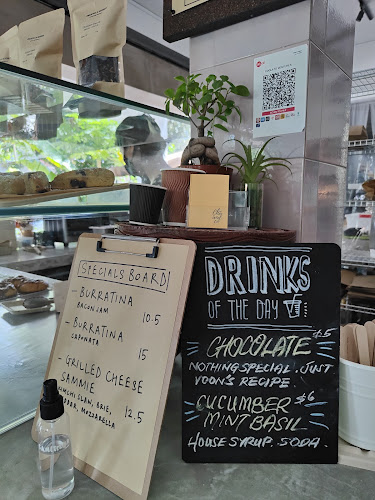 SPECIALS BOARD
- BURRATINA
BACON JAM
10.5
- BURRATINA
CAPONATA
15
- GRILLED CHEESE
SAMMIE
KIMCHI SLAW, BRIE,
MOZZARELLA
12.5
DRINKS
OF THE DAY
CHOCOLATE $5
NOTHING SPECIAL. JUST
YOON'S RECIPE.
CUCUMBER $6
MINT BASIL
HOUSE SYRUP. SODA.